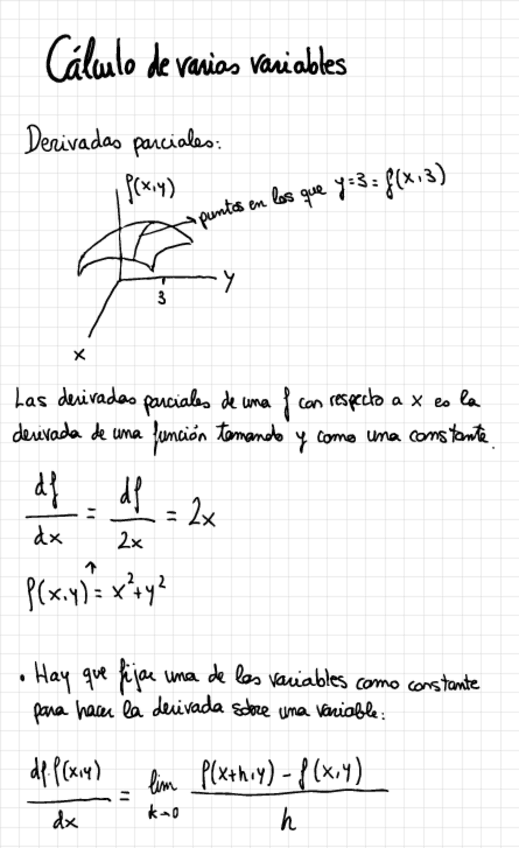 Cálculo de varias variables
Derivadas parciales:
f(x,y)
puntos en los que y=3=f(x,3)
y
3
x
Las derivadas parciales de una f con respecto a x es la
derivada de una función tomando y como una constante.
df/dx = df/2x = 2x
↑
f(x,y) = x²+y²
• Hay que fijar una de las variables como constante
para hacer la derivada sobre una variable:
df·f(x,y)/dx = lim k→0 f(x+h,y) - f(x,y)/h